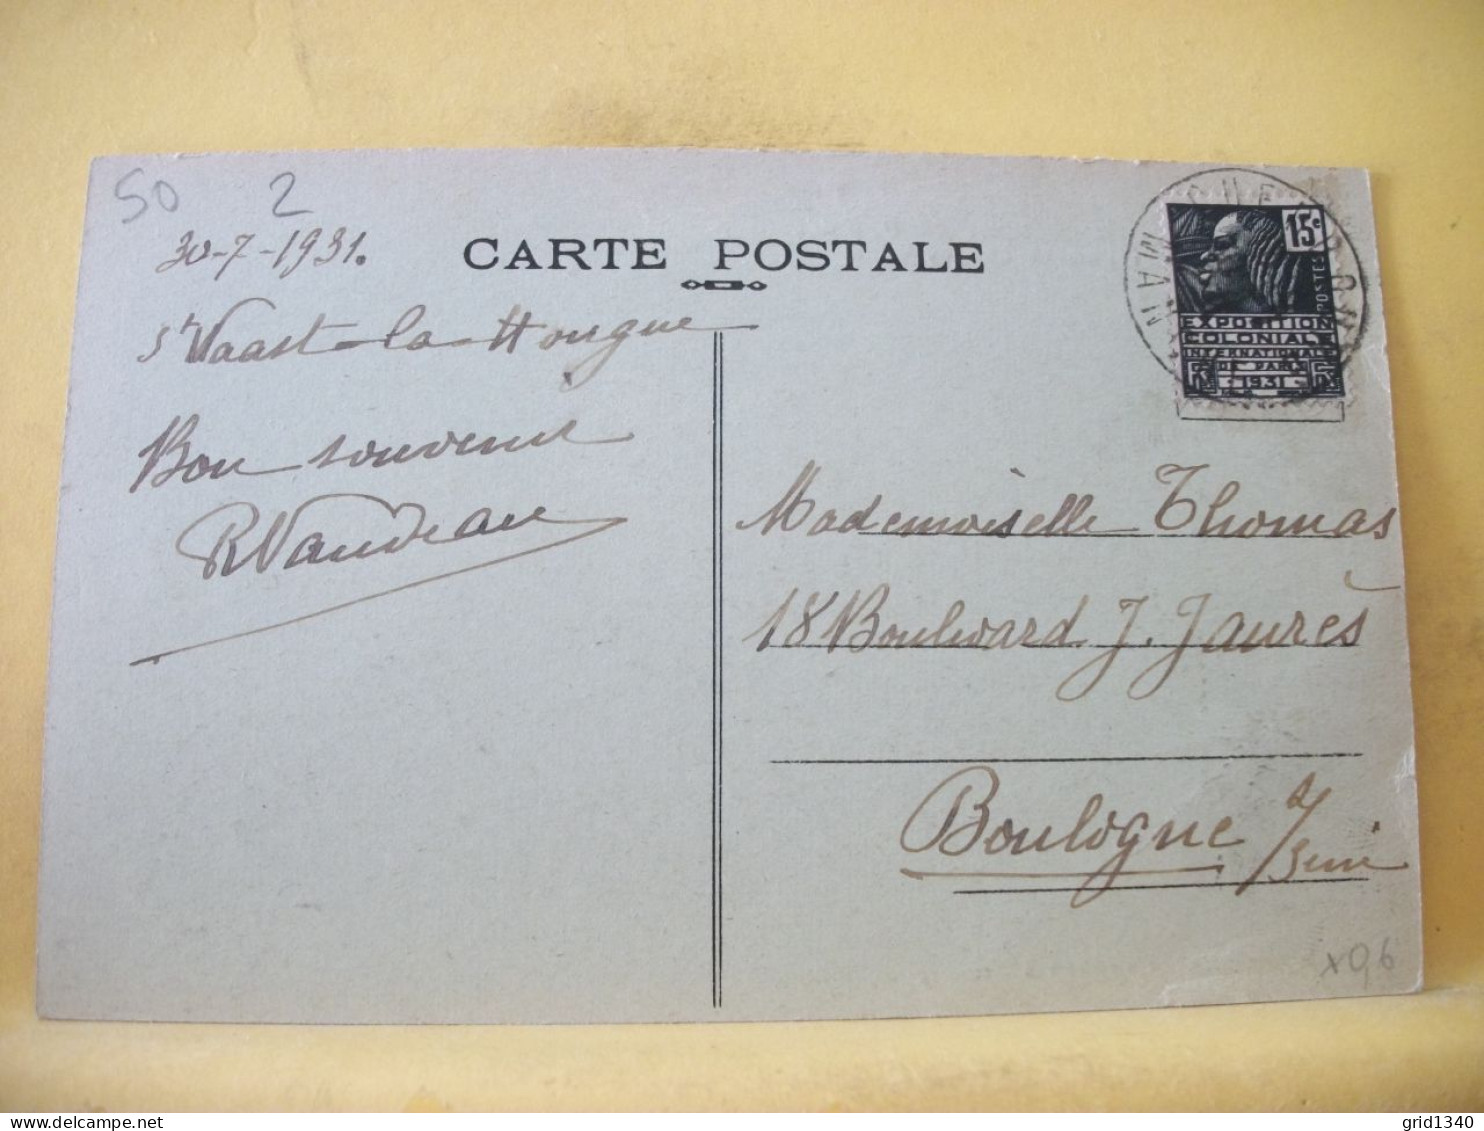 50 2
30-7-1931.
CARTE POSTALE
St Vaast-la-Hougue
Bon souvenir
R Vandeau
15c
POSTES
EXPOSITION
COLONIALE
INTERNATIONALE
DE PARIS
1931
Mademoiselle Thomas
18 Boulevard J. Jaurès
Boulogne s/
Seine
x96
grid1340